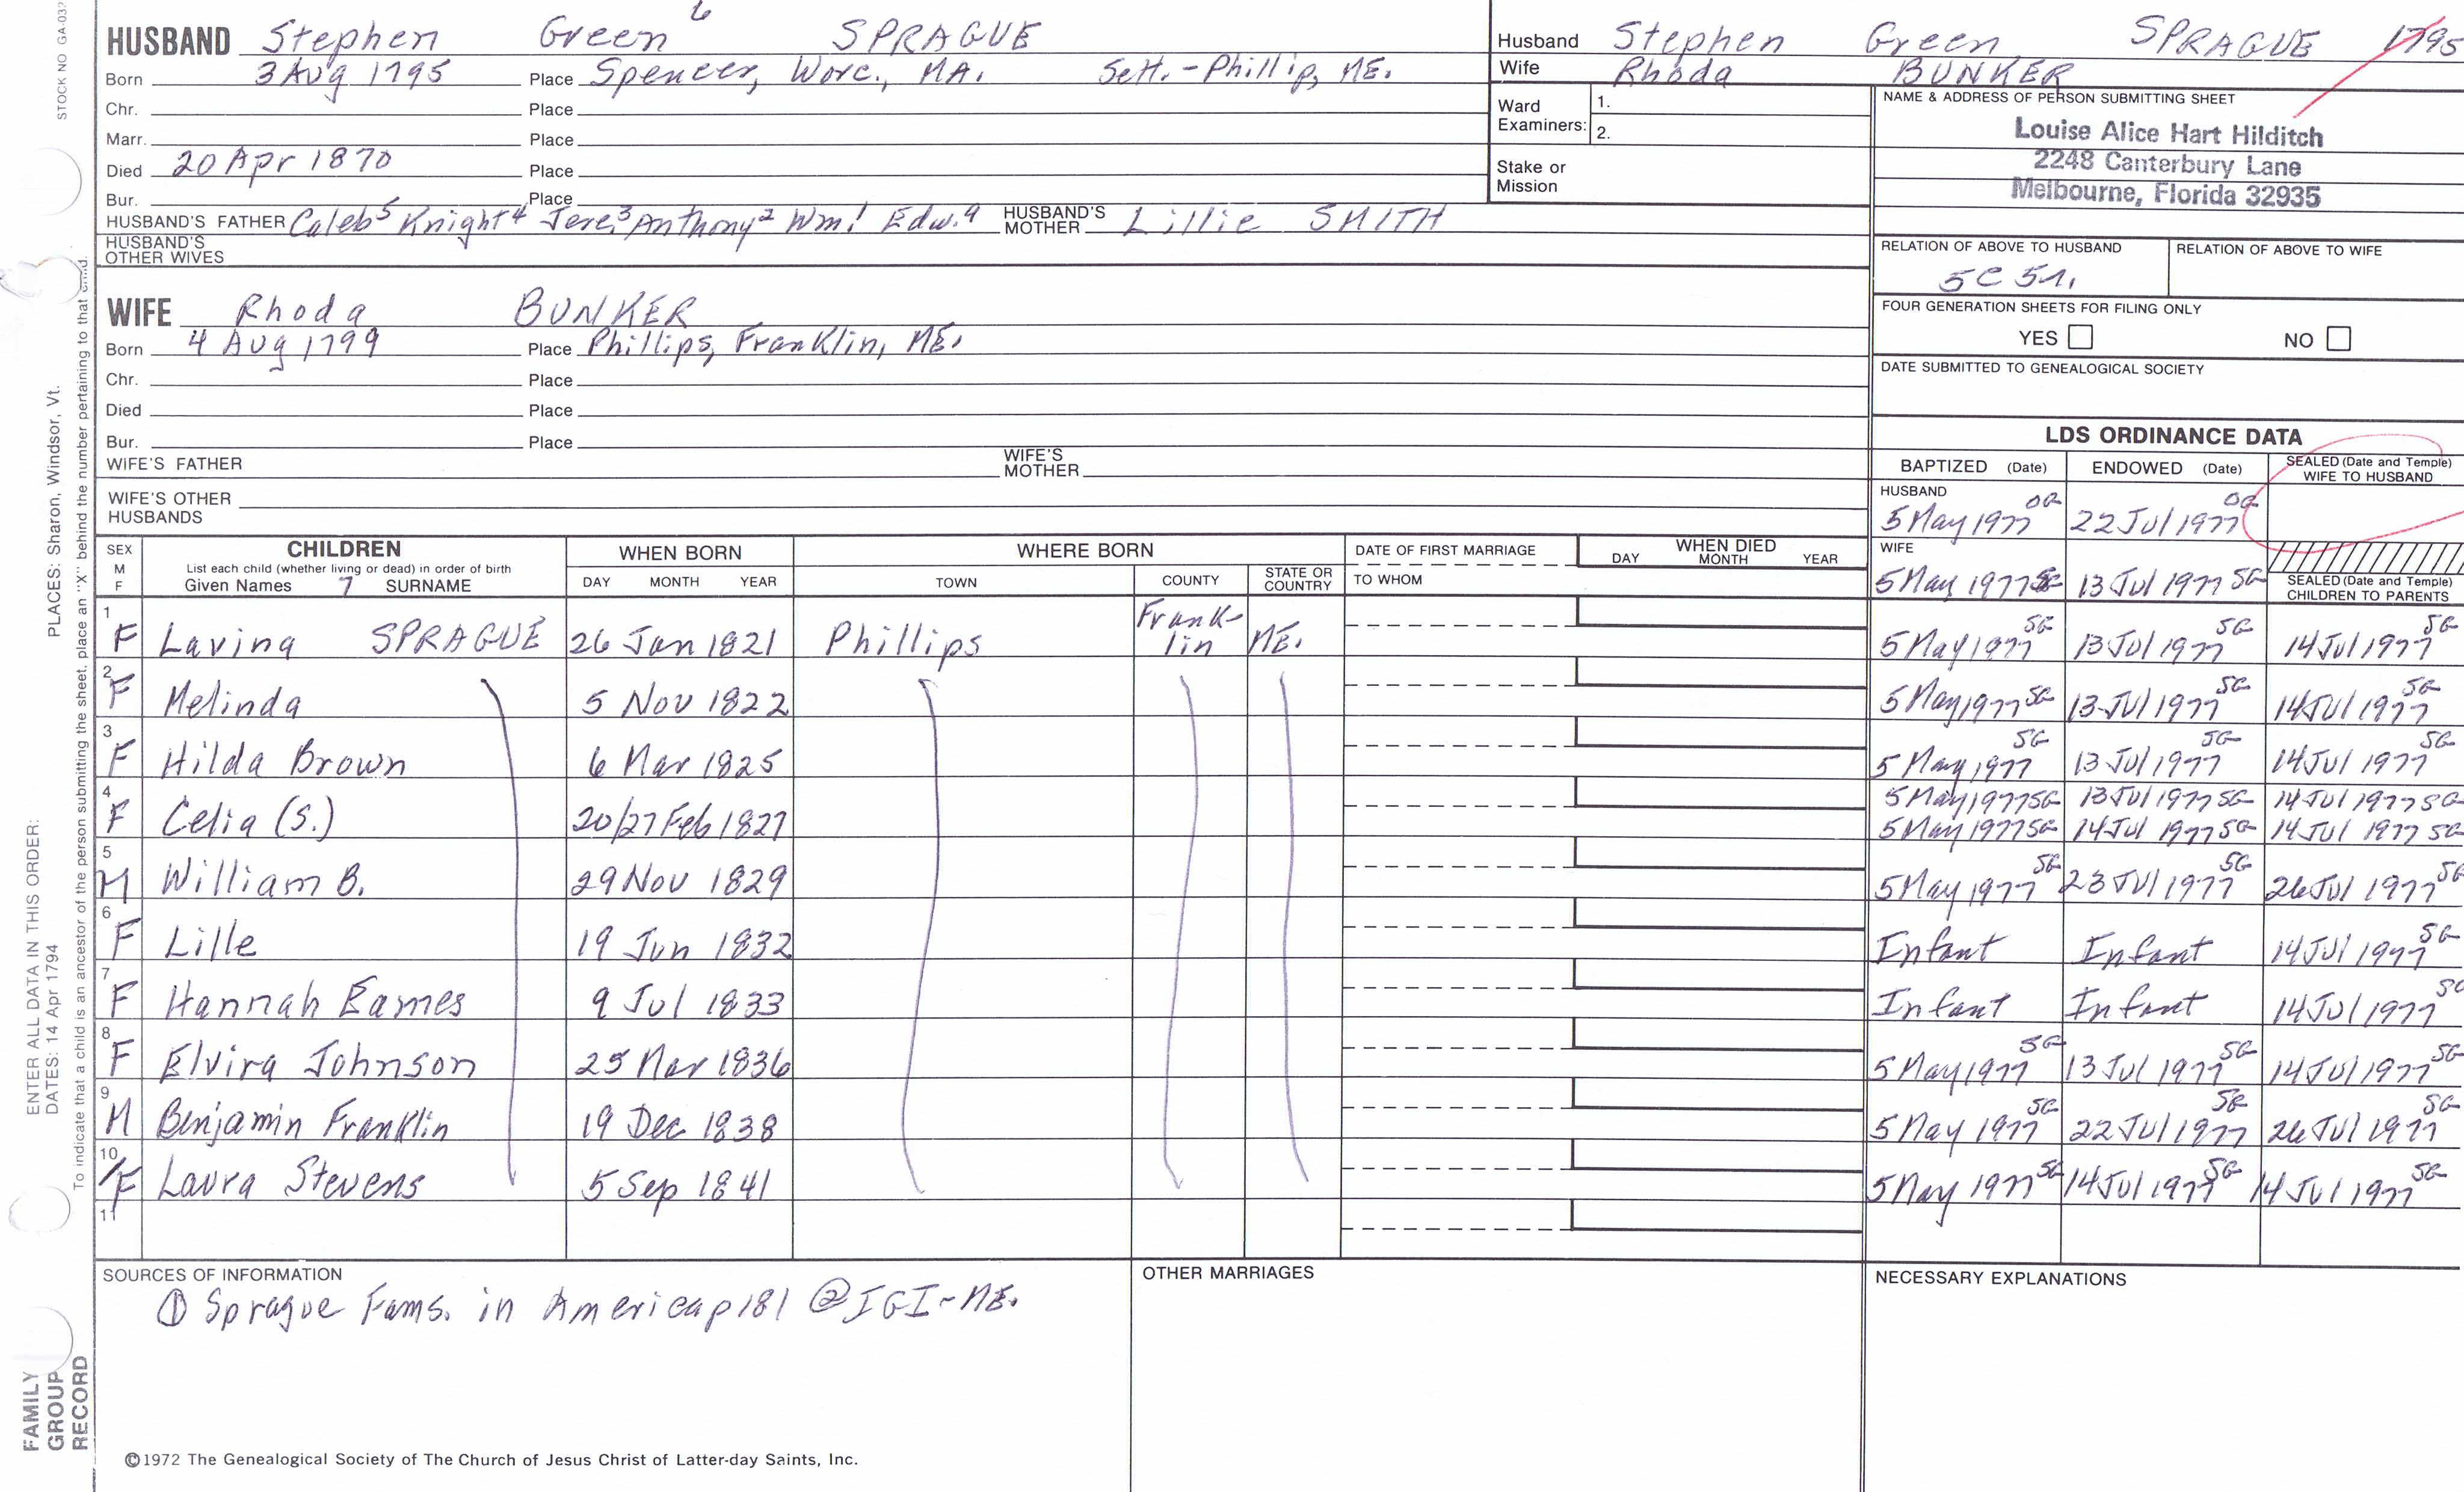 STOCK NO GA-032
HUSBAND Stephen Green 6 SPRAGUE
Born 3 Aug 1795 Place Spencer, Worc., MA. Sett.-Phillip, ME.
Chr. Place
Marr. Place
Died 20 Apr 1870 Place
Bur. Place
HUSBAND'S FATHER Caleb5 Knight4 Jere.3 Anthony2 Wm.1 Edw.a HUSBAND'S MOTHER Lillie SMITH
HUSBAND'S OTHER WIVES
WIFE Rhoda BUNKER
Born 4 Aug 1799 Place Phillips, Franklin, ME.
Chr. Place
Died Place
Bur. Place
WIFE'S FATHER WIFE'S MOTHER
WIFE'S OTHER HUSBANDS
Husband Stephen Green SPRAGUE 1795
Wife Rhoda BUNKER
Ward Examiners: 1.
2.
Stake or Mission
NAME & ADDRESS OF PERSON SUBMITTING SHEET
Louise Alice Hart Hilditch
2248 Canterbury Lane
Melbourne, Florida 32935
RELATION OF ABOVE TO HUSBAND RELATION OF ABOVE TO WIFE
5C 5r.
FOUR GENERATION SHEETS FOR FILING ONLY
YES NO
DATE SUBMITTED TO GENEALOGICAL SOCIETY
LDS ORDINANCE DATA
BAPTIZED (Date) ENDOWED (Date) SEALED (Date and Temple) WIFE TO HUSBAND
HUSBAND 5 May 1977 OG 22 Jul 1977 OG
WIFE 5 May 1977 SG 13 Jul 1977 SG
SEALED (Date and Temple) CHILDREN TO PARENTS
SEX M F CHILDREN WHEN BORN WHERE BORN DATE OF FIRST MARRIAGE WHEN DIED
List each child (whether living or dead) in order of birth
Given Names 7 SURNAME DAY MONTH YEAR TOWN COUNTY STATE OR COUNTRY TO WHOM DAY MONTH YEAR
1 F Lavina SPRAGUE 26 Jan 1821 Phillips Frank-lin ME. 5 May 1977 SG 13 Jul 1977 SG 14 Jul 1977 SG
2 F Melinda 5 Nov 1822 5 May 1977 SG 13 Jul 1977 SG 14 Jul 1977 SG
3 F Hilda Brown 6 Mar 1825 5 May 1977 SG 13 Jul 1977 SG 14 Jul 1977 SG
4 F Celia (S.) 20/27 Feb 1827 5 May 1977 SG 13 Jul 1977 SG 14 Jul 1977 SG
5 May 1977 SG 14 Jul 1977 SG 14 Jul 1977 SG
5 M William B. 29 Nov 1829 5 May 1977 SG 23 Jul 1977 SG 26 Jul 1977 SG
6 F Lille 19 Jun 1832 Infant Infant 14 Jul 1977 SG
7 F Hannah Eames 9 Jul 1833 Infant Infant 14 Jul 1977 SG
8 F Elvira Johnson 25 Mar 1836 5 May 1977 SG 13 Jul 1977 SG 14 Jul 1977 SG
9 M Benjamin Franklin 19 Dec 1838 5 May 1977 SG 22 Jul 1977 SG 26 Jul 1977 SG
10 F Laura Stevens 5 Sep 1841 5 May 1977 SG 14 Jul 1977 SG 14 Jul 1977 SG
11
SOURCES OF INFORMATION
① Sprague Fams. in America p181 ② IGI-ME.
OTHER MARRIAGES
NECESSARY EXPLANATIONS
©1972 The Genealogical Society of The Church of Jesus Christ of Latter-day Saints, Inc.
FAMILY GROUP RECORD
ENTER ALL DATA IN THIS ORDER:
DATES: 14 Apr 1794 PLACES: Sharon, Windsor, Vt.
To indicate that a child is an ancestor of the person submitting the sheet, place an "X" behind the number pertaining to that child.